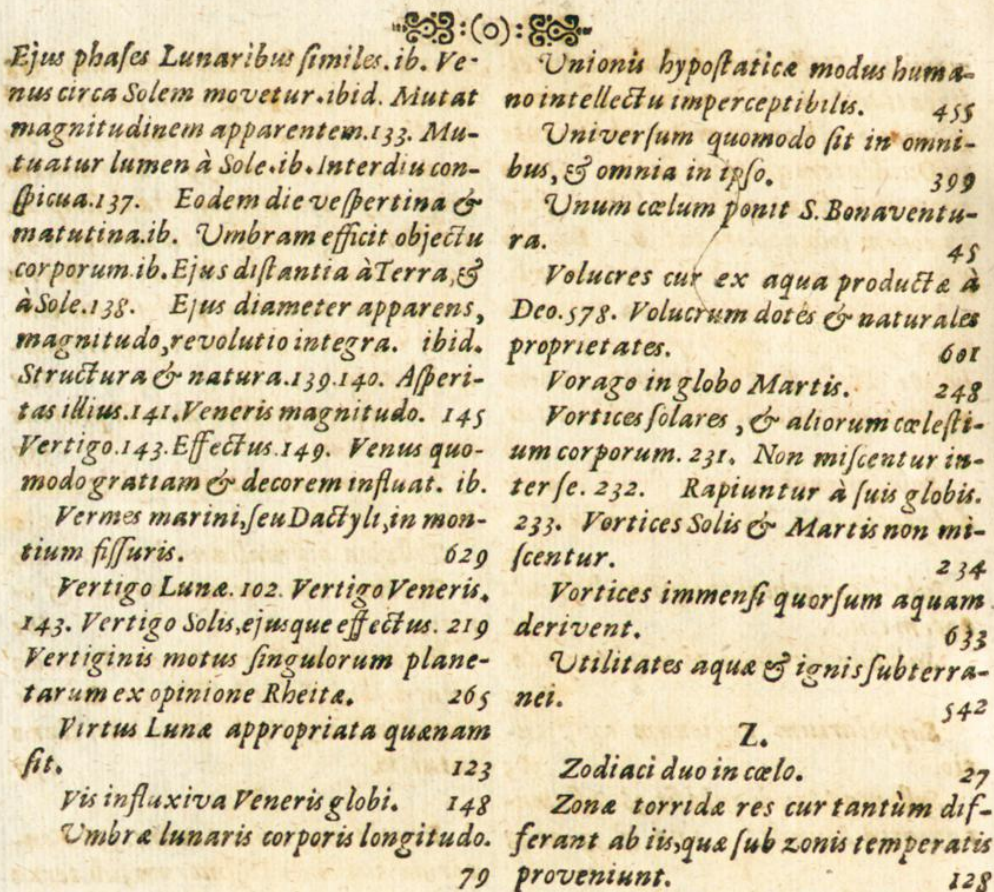 :(o):
Ejus phaſes Lunaribus ſimiles. ib. Ve-
nus circa Solem movetur. ibid. Mutat
magnitudinem apparentem. 133. Mu-
tuatur lumen à Sole. ib. Interdiu con-
ſpicua. 137. Eodem die veſpertina &
matutina. ib. Umbram efficit objectu
corporum. ib. Ejus diſtantia à Terra, &
à Sole. 138. Ejus diameter apparens,
magnitudo, revolutio integra. ibid.
Structura & natura. 139. 140. Aſperi-
tas illius. 141. Veneris magnitudo. 145
Vertigo. 143. Effectus. 149. Venus quo-
modo gratiam & decorem influat. ib.
Vermes marini, ſeu Dactyli, in mon-
tium fiſſuris. 629
Vertigo Lunæ. 102. Vertigo Veneris.
143. Vertigo Solis, ejusque effectus. 219
Vertiginis motus ſingulorum plane-
tarum ex opinione Rheitæ. 265
Virtus Lunæ appropriata quænam
ſit. 123
Vis influxiva Veneris globi. 148
Umbræ lunaris corporis longitudo.
79
Unionis hypoſtaticæ modus huma-
no intellectu imperceptibilis. 455
Univerſum quomodo ſit in omni-
bus, & omnia in ipſo. 399
Unum cœlum ponit S. Bonaventu-
ra. 45
Volucres cur ex aqua productæ à
Deo. 578. Volucrum dotes & naturales
proprietates. 601
Vorago in globo Martis. 248
Vortices ſolares, & aliorum cœleſti-
um corporum. 231. Non miſcentur in-
ter ſe. 232. Rapiuntur à ſuis globis.
233. Vortices Solis & Martis non mi-
ſcentur. 234
Vortices immenſi quorſum aquam
derivent. 633
Utilitates aquæ & ignis ſubterra-
nei. 542
Z.
Zodiaci duo in cœlo. 27
Zonæ torridæ res cur tantùm dif-
ferant ab iis, quæ ſub zonis temperatis
proveniunt. 128